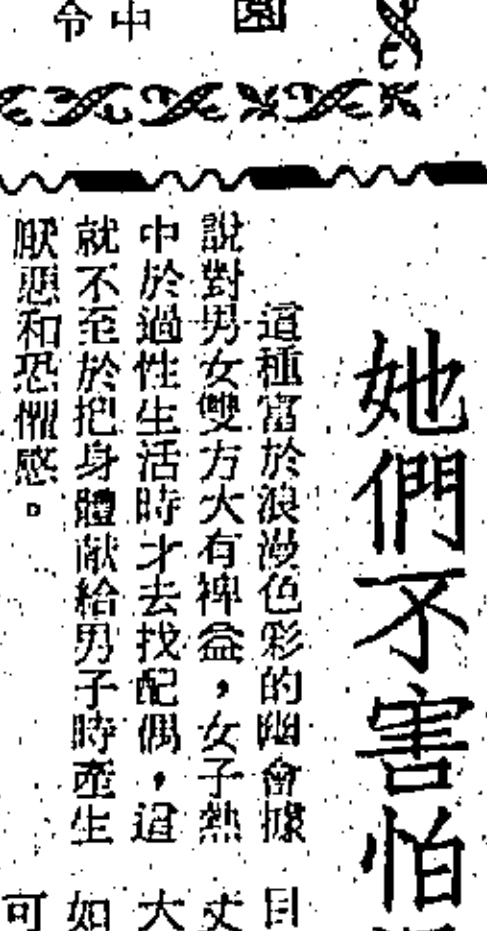 中
令
園
她們不害怕
這種富於浪漫色彩的幽會據
說對男女雙方大有裨益，女子熱
中於過性生活時才去找配偶，這
就不至於把身體献給男子時產生
厭惡和恐懼感。
目
丈
大
如
可